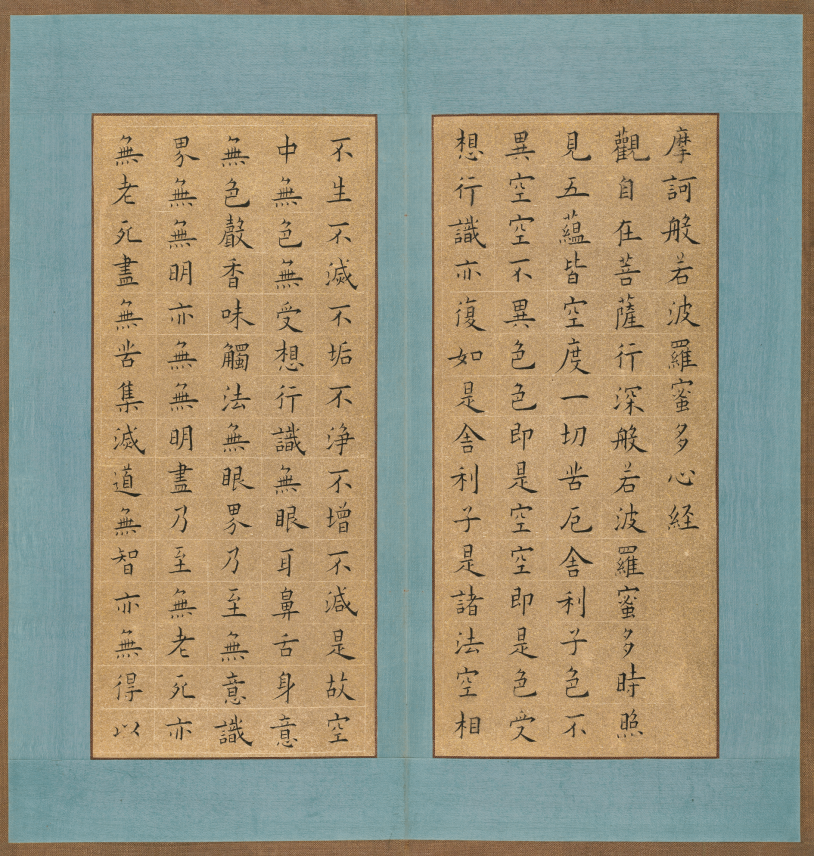 摩訶般若波羅蜜多心経
觀自在菩薩行深般若波羅蜜多時照
見五蘊皆空度一切苦厄舍利子色不
異空空不異色色即是空空即是色受
想行識亦復如是舎利子是諸法空相
不生不滅不垢不淨不增不減是故空
中無色無受想行識無眼耳鼻舌身意
無色聲香味觸法無眼界乃至無意識
界無無明亦無無明盡乃至無老死亦
無老死盡無苦集滅道無智亦無得以